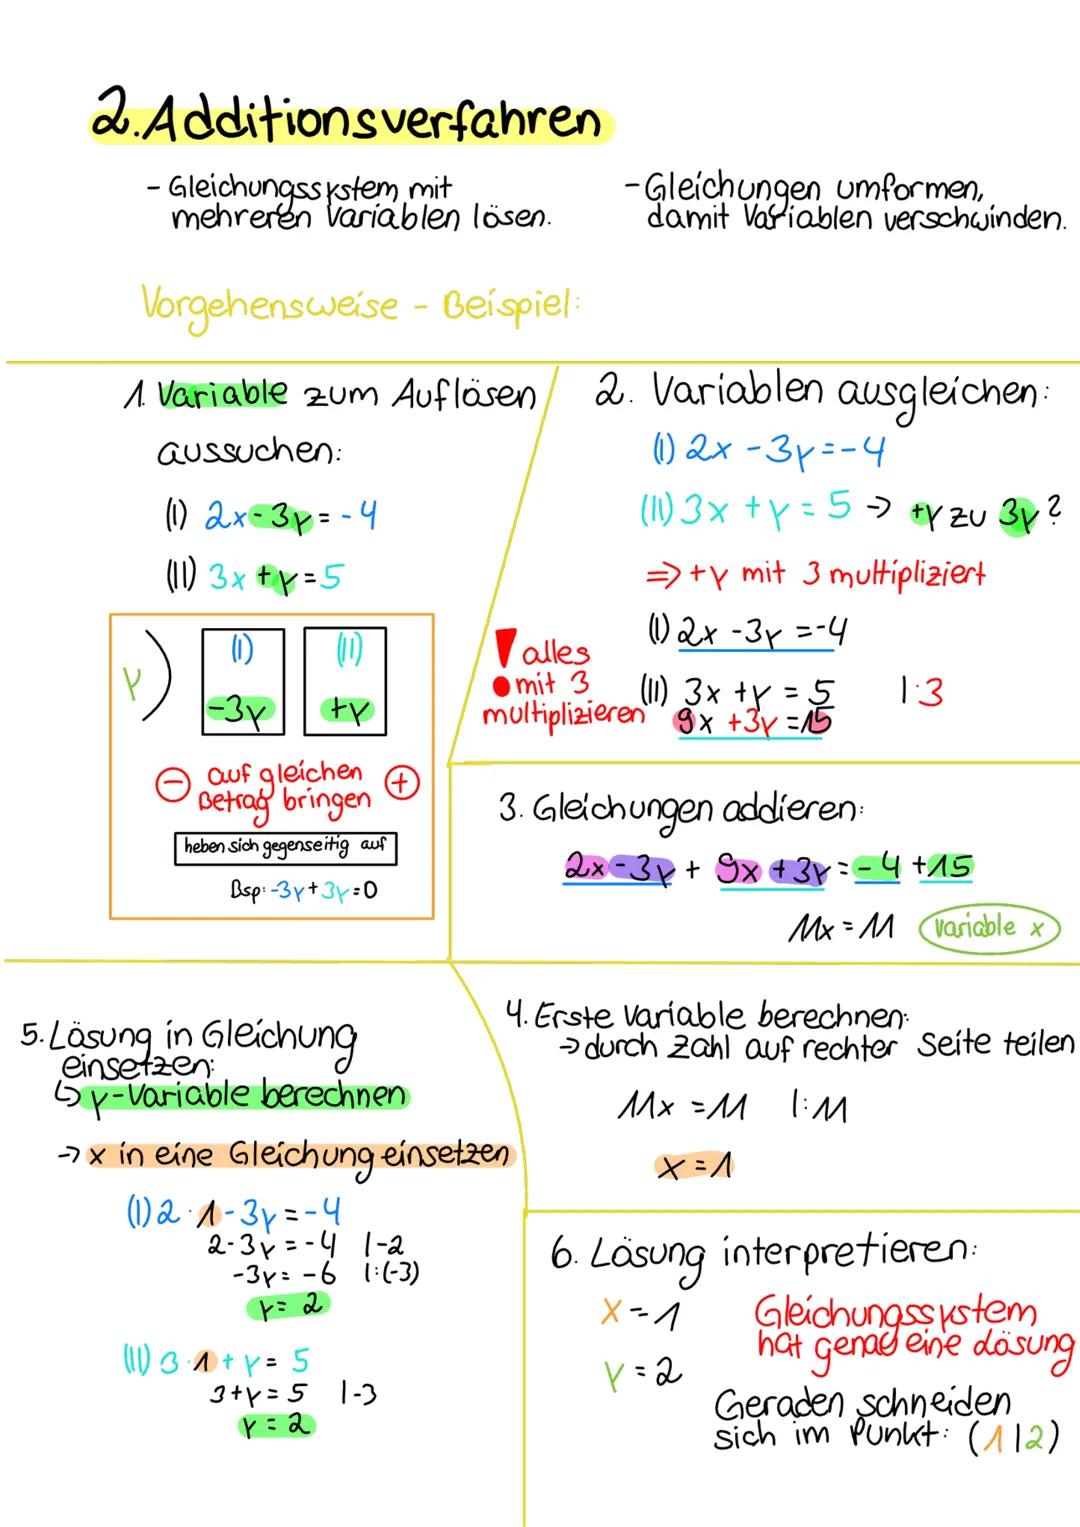 2. Additionsverfahren
- Gleichungssystem mit
mehreren Variablen lösen.
- Gleichungen umformen,
damit Variablen verschwinden.
Vorgehensweise - Beispiel:
1. Variable zum Auflösen
aussuchen:
(I) 2x - 3y = - 4
(II) 3x + y = 5
y) (I) (II)
-3y +y
- auf gleichen +
Betrag bringen
heben sich gegenseitig auf
Bsp: -3y + 3y = 0
2. Variablen ausgleichen:
(I) 2x - 3y = - 4
(II) 3x + y = 5 → +y zu 3y?
⇒ +y mit 3 multipliziert
(I) 2x - 3y = -4
! alles
mit 3
multiplizieren
(II) 3x + y = 5 | · 3
9x + 3y = 15
3. Gleichungen addieren:
2x - 3y + 9x + 3y = - 4 + 15
11x = 11 Variable x
4. Erste Variable berechnen:
→ durch Zahl auf rechter Seite teilen
11x = 11 | : 11
x = 1
5. Lösung in Gleichung
einsetzen:
↳ y-Variable berechnen
→ x in eine Gleichung einsetzen
(I) 2 · 1 - 3y = - 4
2 - 3y = - 4 | -2
-3y = -6 | : (-3)
y = 2
(II) 3 · 1 + y = 5
3 + y = 5 | -3
y = 2
6. Lösung interpretieren:
x = 1
y = 2
Gleichungssystem
hat genau eine Lösung
Geraden schneiden
sich im Punkt: (1 | 2)